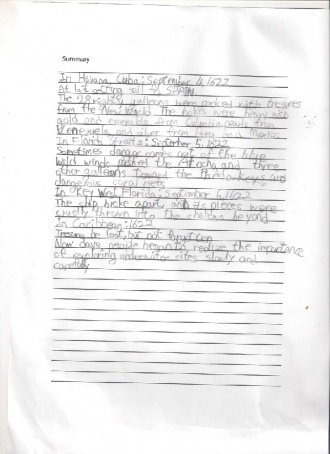 Summary
In Havana, Cuba: September 4, 1622
At last setting sail to SPAIN
The 28 mighty galleons were packed with treasures
from the New World. The holds were heavy with
gold and emeralds from Colombia, pearls from
Venezuela, and silver from Peru and Mexico.
In Florida Straits: September 5, 1622
Sometimes danger comes out of the blue
Wild winds pushed the Atocha and three
other galleons toward the Florida Keys and
dangerous coral reefs.
In Key West, Florida: September 6, 1622
The ship broke apart, and its pieces were
cruelly thrown into the beyond
In Caribbean: 1622
be lost, but not forgotten
Now days people began to realize the importance
of exploring underwater sites slowly and
carefully